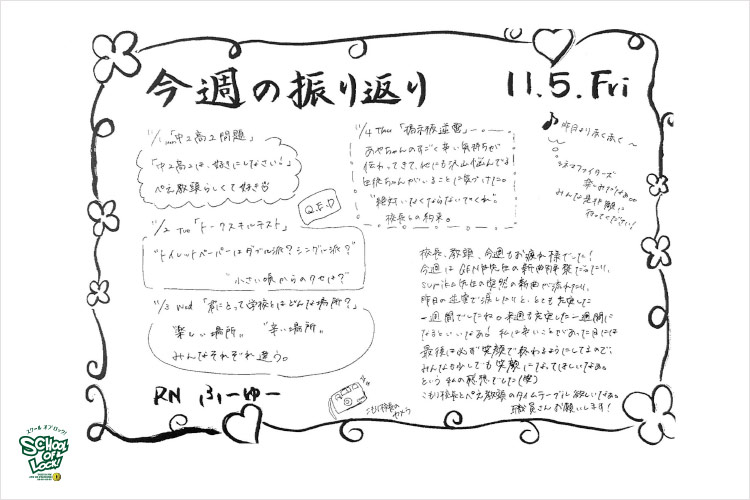 今週の振り返り
11.5.Fri
11/1 mon「中2高2問題」
「中2高2は、好きにしなさい!」
ぺえ教頭らしくて好き
Q.E.D
11/2 Tue「トークスキルテスト」
"トイレットペーパーはダブル派?シングル派?"
"小さい頃からのクセは?"
11/3 Wed「君にとって学校とはどんな場所?」
"楽しい場所。" "辛い場所。"
みんなそれぞれ違う。
RN ふーゆー
11/4 Thu「掲示板逆電」
あやちゃんのすごく辛い気持ちが
伝わってきて、他にも沢山悩んでる
生徒ちゃんがいることに気づけた。
"絶対いなくならないでくれ"
校長との約束。
昨日より永く永く〜
ファイターズ
みんな是非観に
行ってください!
校長、教頭、今週もお疲れ様でした!
今週はGEN先生の新曲解禁だったり、
sumika先生の突然の新曲が流れたり、
昨日の逆電で涙したりと、とても充実した
一週間でしたね。来週も充実した一週間に
なるといいなぁ!私は辛いことがあった日には
最後は必ず笑顔で終わるようにしてるので、
みんなも少しでも笑顔になってほしいなぁ。
という私の感想でした(笑)
こもり校長とぺえ教頭のタイムテーブル欲しいなぁ。
職員さんお願いします!
こもり校長の
カメラ
スクール オブ ロック!
SCHOOL
OF
LOCK!